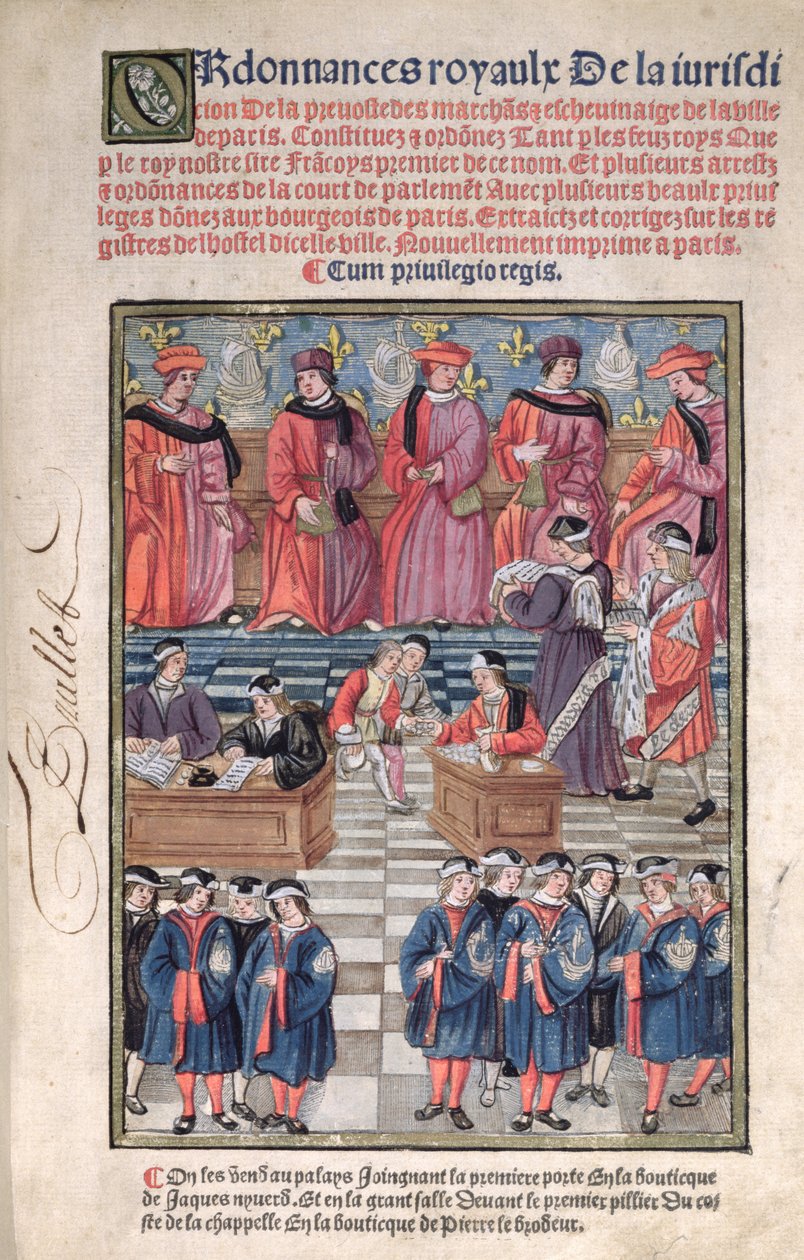 ORdonnances royaulx De la iurisdi
cion De la preuoste des marchãs & escheuinaige de la ville
de paris. Constituez & ordõnez Tant p les feuz roys Que
p le roy nostre sire Frãcoys premier de ce nom. Et plusieurs arrestz
& ordõnances de la court de parlemẽt Auec plusieurs beaulx priui
leges dõnez aux bourgeois de paris. Extraictz et corrigez sur les re
gistres de lhostel dicelle ville. Nouuellement imprime a paris.
¶ Cum priuilegio regis.
¶ On les vend au palays Joingnant la premiere porte En la bouticque
de Jaques nyuerd. Et en la grant salle Deuant le premier pillier Du co
ste de la chappelle En la bouticque de Pierre le brodeur.